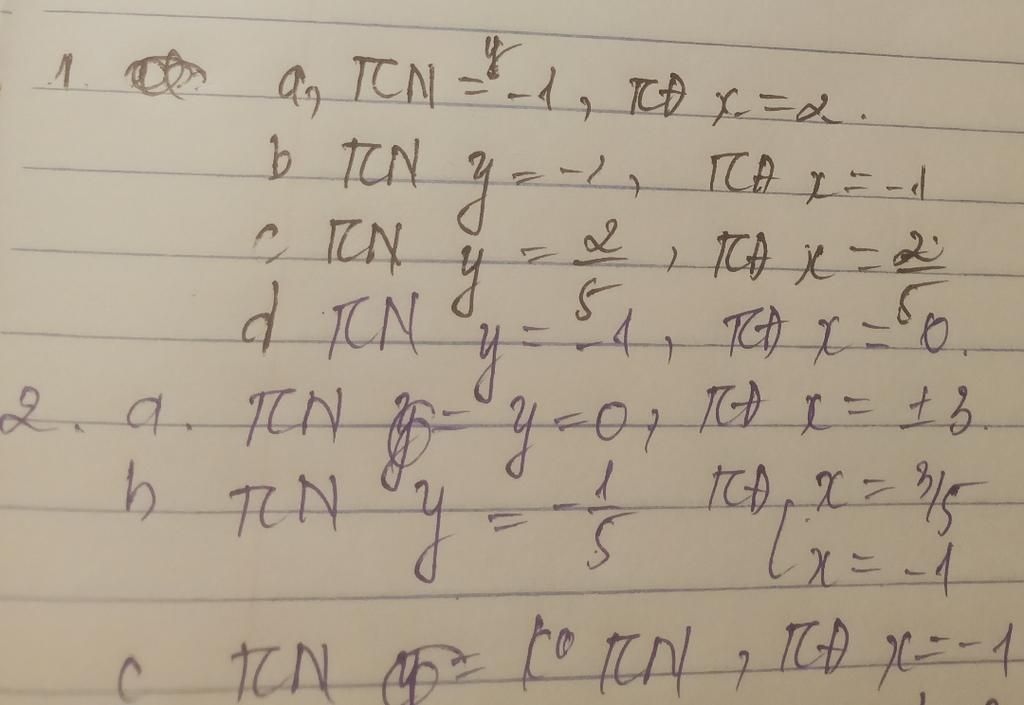 1. a, TCN = y -1, TCĐ x = 2.
b TCN y = -1, TCĐ x = -1
c TCN y = 2/5, TCĐ x = 2/5
d TCN y = -1, TCĐ x = 0.
2. a. TCN y = 0, TCĐ x = ±3.
b TCN y = -1/5 TCĐ [ x = 3/5
x = -1
c TCN = ko TCN, TCĐ x = -1